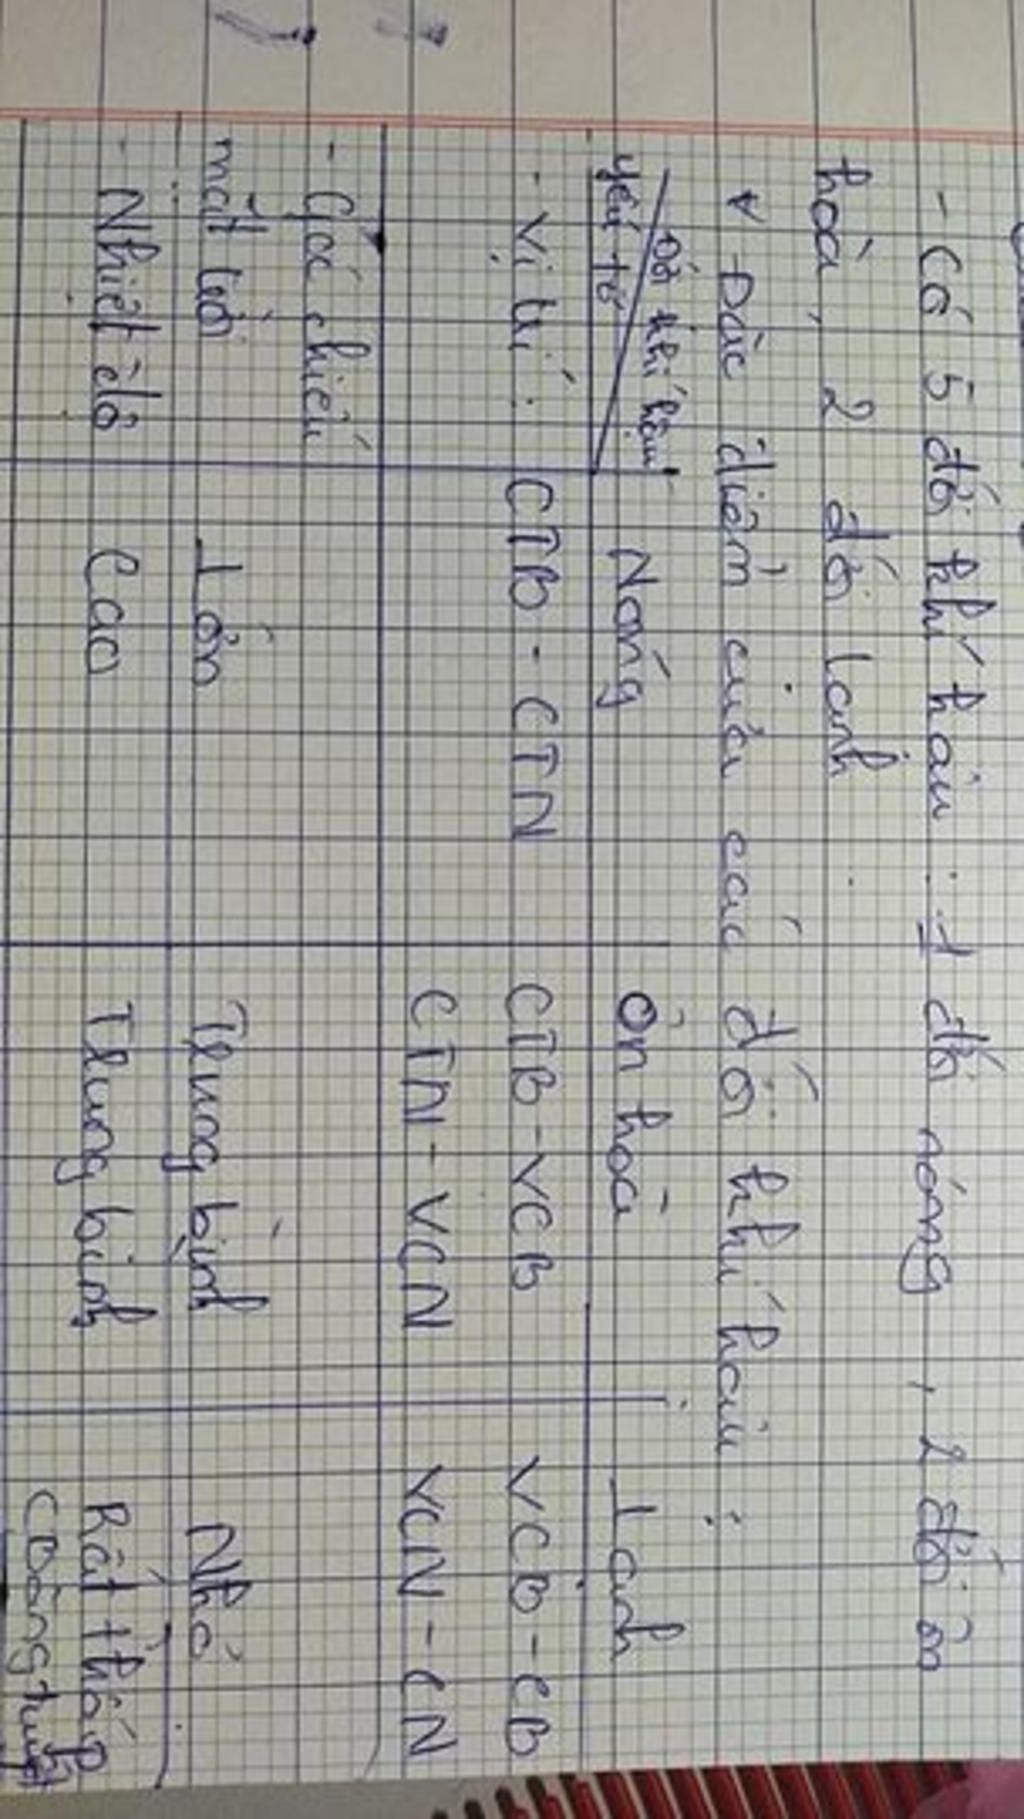 - Có 5 đới khí hậu : 1 đới nóng , 2 đới ôn
hoà , 2 đới lạnh
* Đặc điểm của các đới khí hậu :
Đới khí hậu
yếu tố
Nóng
Ôn hoà
Lạnh
- Vị trí :
CTB - CTN
CTB - VCB
VCB - CB
CTN - VCN
VCN - CN
- Góc chiếu
mặt trời
Lớn
Trung bình
Nhỏ
- Nhiệt độ
Cao
Trung bình
Rất thấp